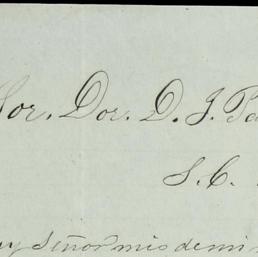 Sor. Dor. D. J. Pa
S. C.
uy Señor mio de mi